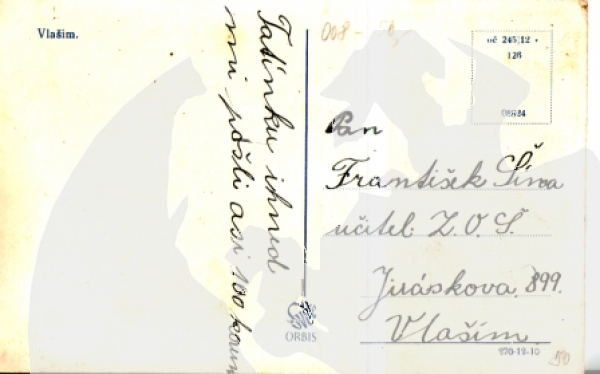 Vlašim.
Tatínku ihned
mi pošli asi 100 korun
008-
uč 245|12 •
126
08824
Pan
František Šíva
učitel Z.O.Š.
Jiráskova 899.
Vlašim.
ORBIS
270-12-10
50